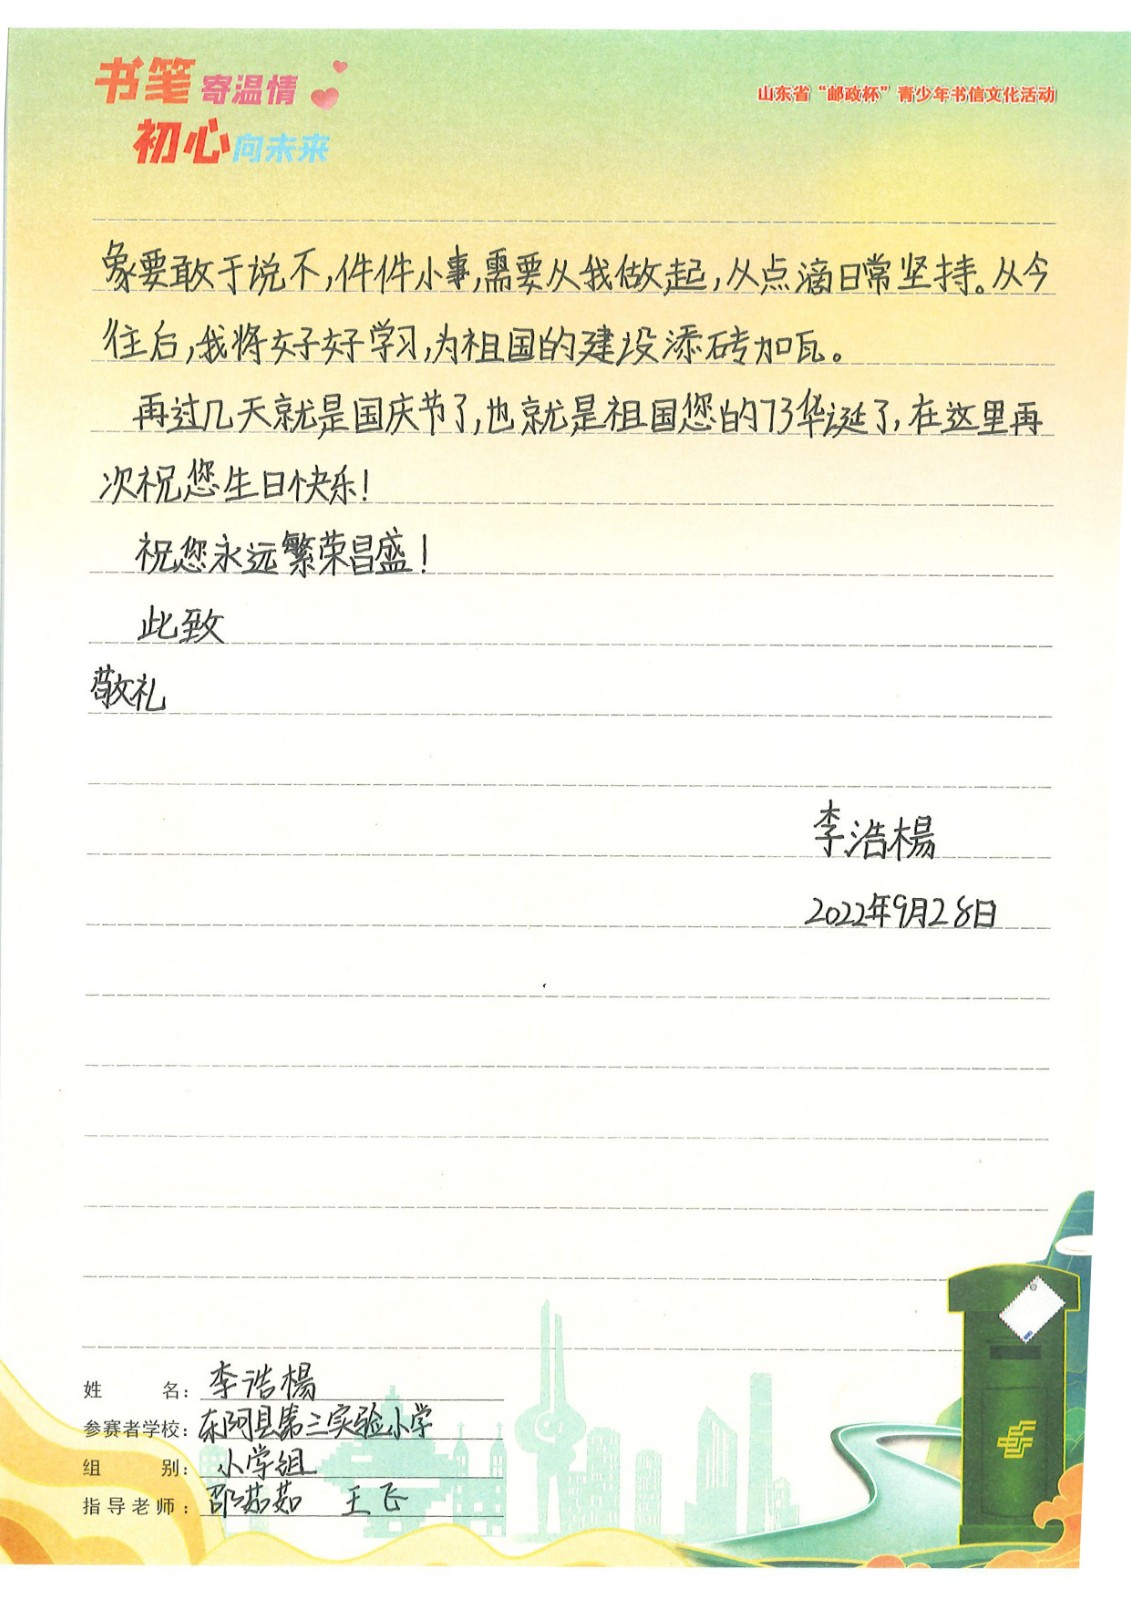 书笔寄温情
初心向未来
山东省“邮政杯”青少年书信文化活动
象要敢于说不,件件小事,需要从我做起,从点滴日常坚持。从今
往后,我将好好学习,为祖国的建设添砖加瓦。
再过几天就是国庆节了,也就是祖国您的73华诞了,在这里再
次祝您生日快乐!
祝您永远繁荣昌盛!
此致
敬礼
李浩楊
2022年9月28日
姓 名: 李浩楊
参赛者学校: 东阿县第三实验小学
组 别: 小学组
指导老师: 邵茹茹 王飞